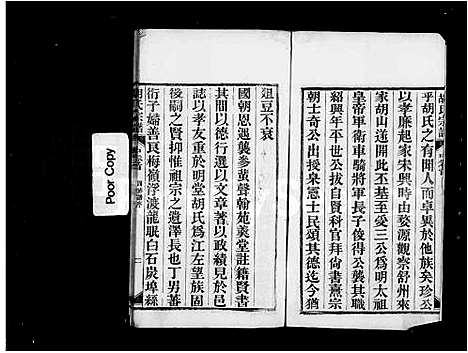 胡氏宗譜
乎胡氏之有開人而卓異於他族矣珍公
以孝廉起家宋興時由婺源觀察舒州來
家胡山遂開此基至愛三公爲明太祖
皇帝軍衛車騎將軍長子俊得公襲其職
紹興年平世公出自賢科官拜尙書熹宗
朝士奇公出授泉憲士民頌其德迄今猶
俎豆不衰
國朝恩遇襲參黃聲翰苑美堂註籍賢書
其間以德行選以文章達者以政績見於邑
誌以孝友重於明堂胡氏爲江左望族固
後嗣之賢抑惟祖宗之遺澤長也丁男蕃
衍子婦善良梅嶺浮渡龍眠白石炭埠絲
Poor Copy